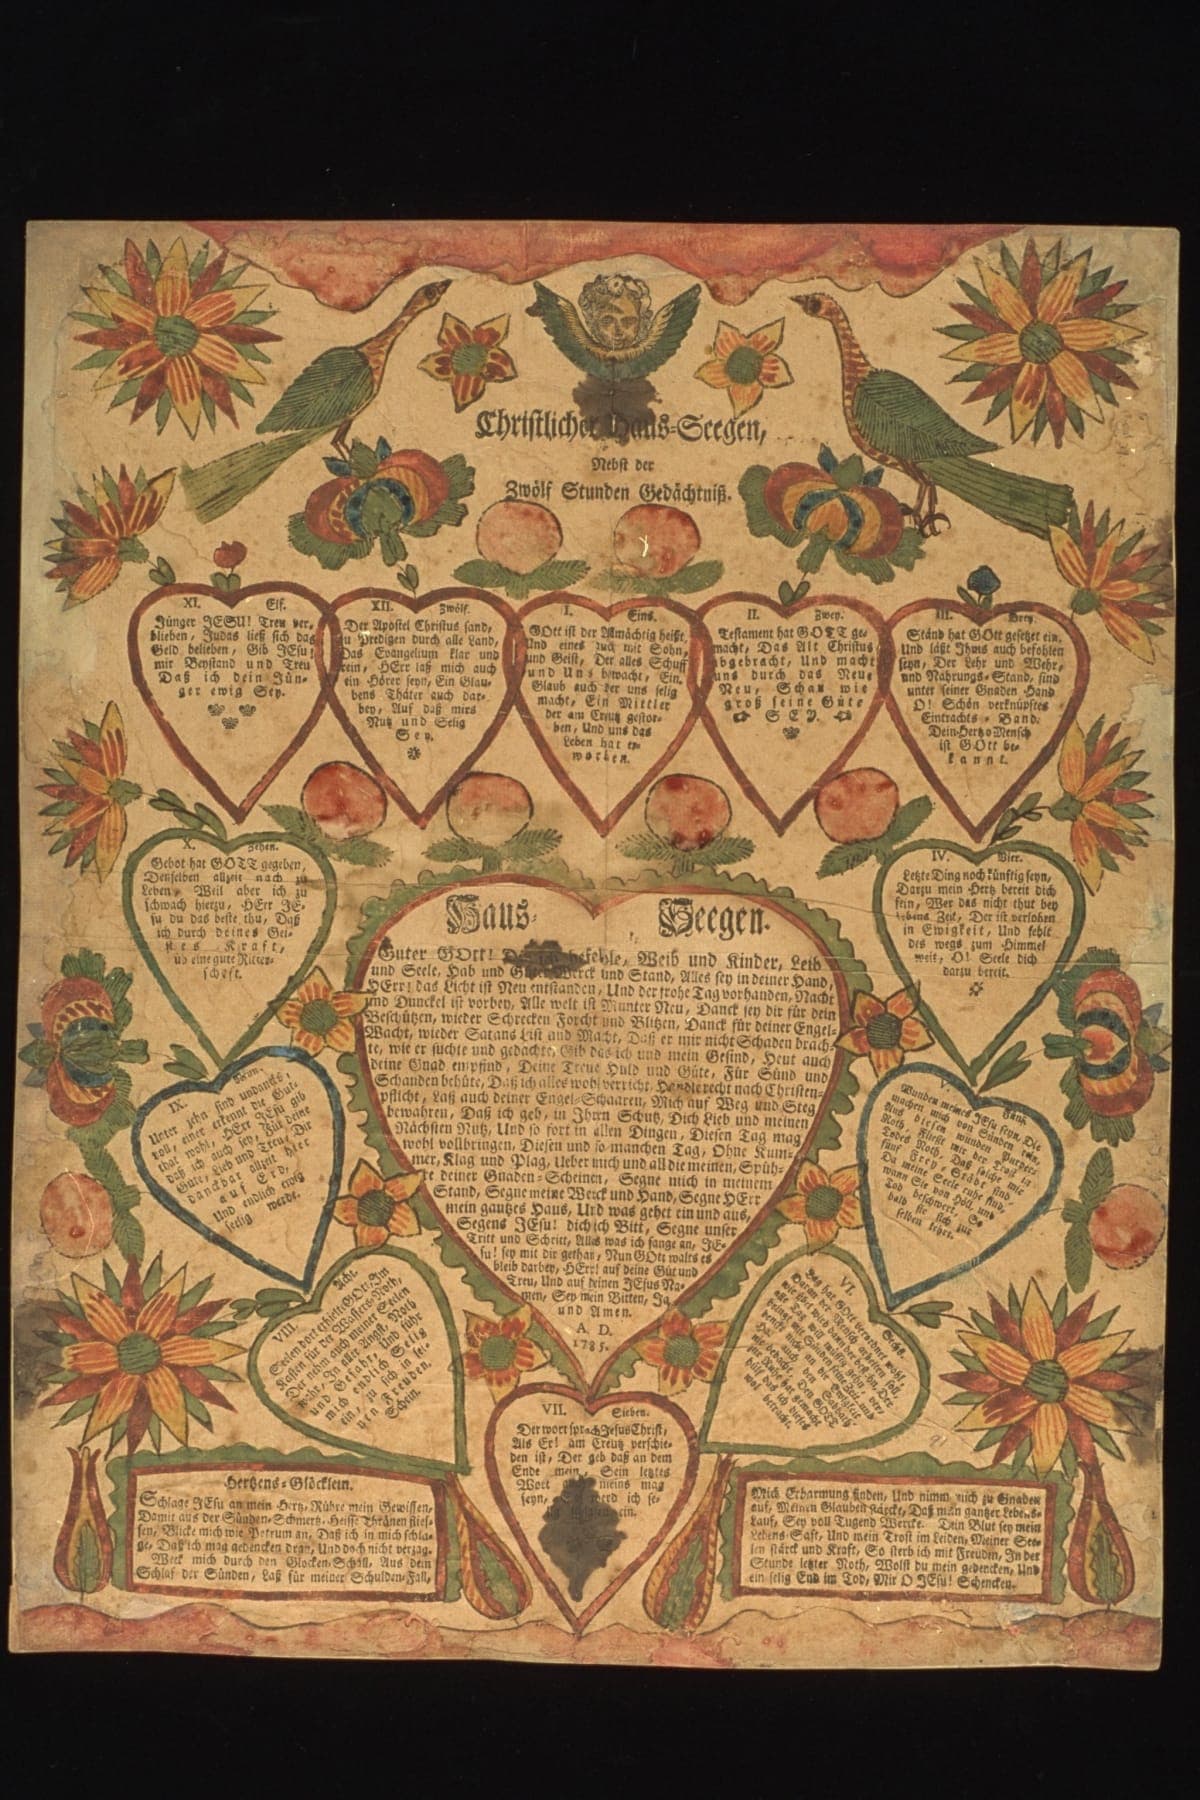 Christlicher Haus-Seegen,
Nebst der
Zwölf Stunden Gedächtniß.
XI. Elf.
Jünger JESU! Treu ver-
blieben, Judas ließ sich das
Geld belieben, Gib JEsu!
mir Beystand und Treu
Daß ich dein Jün-
ger ewig Sey.
XII. Zwölf.
Der Apostel Christus sand,
zu Predigen durch alle Land,
Das Evangelium klar und
rein, HErr laß mich auch
ein Hörer seyn, Ein Glau-
bens Thäter auch dar-
bey, Auf daß mirs
Nutz und Selig
Sey.
I. Eins.
GOtt ist der Allmächtig heißt,
Und eines auch mit Sohn,
und Geist, Der alles Schuff
und Uns bewacht, Ein
Glaub auch der uns selig
macht, Ein Mittler
der am Creutz gestor-
ben, Und uns das
Leben hat er-
worben.
II. Zwey.
Testament hat GOTT ge-
macht, Das Alt Christus
abgebracht, Und macht
uns durch das Neue
Neu, Schau wie
groß seine Güte
SEY.
III. Drey.
Ständ hat GOtt gesetzt ein,
Und läßt Ihms auch befohlen
seyn, Der Lehr und Wehr,
und Nahrungs-Stand, sind
unter seiner Gnaden Hand
O! Schön verknüpftes
Eintrachts-Band.
Dein Hertz o Mensch
ist GOtt be-
kannt.
X. Zehen.
Gebot hat GOTT gegeben,
Denselben allzeit nach zu
Leben, Weil aber ich zu
schwach hierzu, HErr JE-
su du das beste thu, Daß
ich durch deines Gei-
stes Kraft,
üb eine gute Ritter-
schaft.
IV. Vier.
Letzte Ding noch künftig seyn,
Darzu mein Hertz bereit dich
fein, Wer das nicht thut bey
Lebens Zeit, Der ist verlohen
in Ewigkeit, Und fehlt
des wegs zum Himmel
weit, O! Seele dich
darzu bereit.
Haus- Seegen.
Guter GOtt! Dir ich befehle, Weib und Kinder, Leib
und Seele, Hab und Güter Werck und Stand, Alles sey in deiner Hand,
HErr! das Licht ist Neu entstanden, Und der frohe Tag vorhanden, Nacht
und Dunckel ist vorbey, Alle welt ist Munter Neu, Danck sey dir für dein
Beschützen, wieder Schrecken Forcht und Blitzen, Danck für deiner Engel-
Wacht, wieder Satans List and Macht, Daß er mir nicht Schaden brach-
te, wie er suchte und gedachte, Gib das ich und mein Gesind, Heut auch
deine Gnad empfind, Deine Treue Huld und Güte, Für Sünd und
Schanden behüte, Daß ich alles wohl verricht, Handle recht nach Christen-
pflicht, Laß auch deiner Engel-Schaaren, Mich auf Weg und Steg
bewahren, Daß ich geh, in Ihrn Schutz, Dich Lieb und meinen
Nächsten Nutz, Und so fort in allen Dingen, Diesen Tag mag
wohl vollbringen, Diesen und so manchen Tag, Ohne Kum-
mer, Klag und Plag, Ueber mich und all die meinen, Spüh-
re deiner Gnaden-Scheinen, Segne mich in meinem
Stand, Segne meine Werck und Hand, Segne HErr
mein gantzes Haus, Und was gehet ein und aus,
Segens JEsu! dich ich Bitt, Segne unser
Tritt und Schritt, Alles was ich fange an, JE-
su! sey mit dir gethan, Nun GOtt walts es
bleib darbey, HErr! auf deine Güt und
Treu, Und auf deinen JEsus Na-
men, Sey mein Bitten, Ja
und Amen.
A. D.
1785.
IX. Neun.
Unter zehn sind undanck-
voll, einer erkennt die Gut-
that wohl, HErr JEsu gib
daß ich auch sey, Für deine
Güte, Lieb und Treu, Dir
danckbar allzeit hier
auf Erd,
Und endlich ewig
seelig werde.
V. Fünf.
Wunden meines JEsu seyn, Die
machen mich von Sünden rein,
Aus diesen wunden Purpur-
Roth, Fließt mir der Trost in
Todes Noth, Daß solche mir
fünf Frey-Städt sind,
Da meine Seele ruhe find,
wann Sie von Höll, und
Tod beschwert, So
bald sie sich zur
selben kehrt.
VIII. Acht.
Seelen dort erhielt GOtt, Im
Kasten für der Wassers-Noth,
Der nahm auch meiner Seelen
acht, In aller Angst, Noth
und Gefahr, Und führt
mich endlich Selig
ein, zu sich in sei-
nen Freuden-
Schein.
VI. Sechs.
Tag hat GOtt verordnet wohl,
Darinn der Mensch arbeiten soll,
VII. Sieben.
Der wort sprach Jesus Christ,
Als Er! am Creutz verschie-
den ist, Der geb daß an dem
Ende mein, Sein letztes
Wort auch meins mag
seyn, So werd ich se-
Hertzens-Glöcklein.
Schlage JEsu an mein Hertz, Rühre mein Gewissen,
Damit aus der Sünden-Schmertz, Heisse Thränen flies-
sen, Blicke mich wie Petrum an, Daß ich in mich schla-
ge, Daß ich mag gedencken dran, Und doch nicht verzag.
Werk mich durch den Glocken-Schall, Aus dem
Schlaf der Sünden, Laß für meiner Schulden-Fall,
Mich Erbarmung finden, Und nimm mich zu Gnaden
auf, Meinen Glauben stärckt, Daß man gantzer Lebens-
Lauf, Sey voll Tugend Wercke. Dein Blut sey mein
Lebens-Saft, Und mein Trost im Leiden, Meiner See-
len stärck und Kraft, So sterb ich mit Freuden, In der
Stunde letzter Noth, Wollst du mein gedencken, Und
ein selig End im Tod, Mir O JEsu! Schencken.